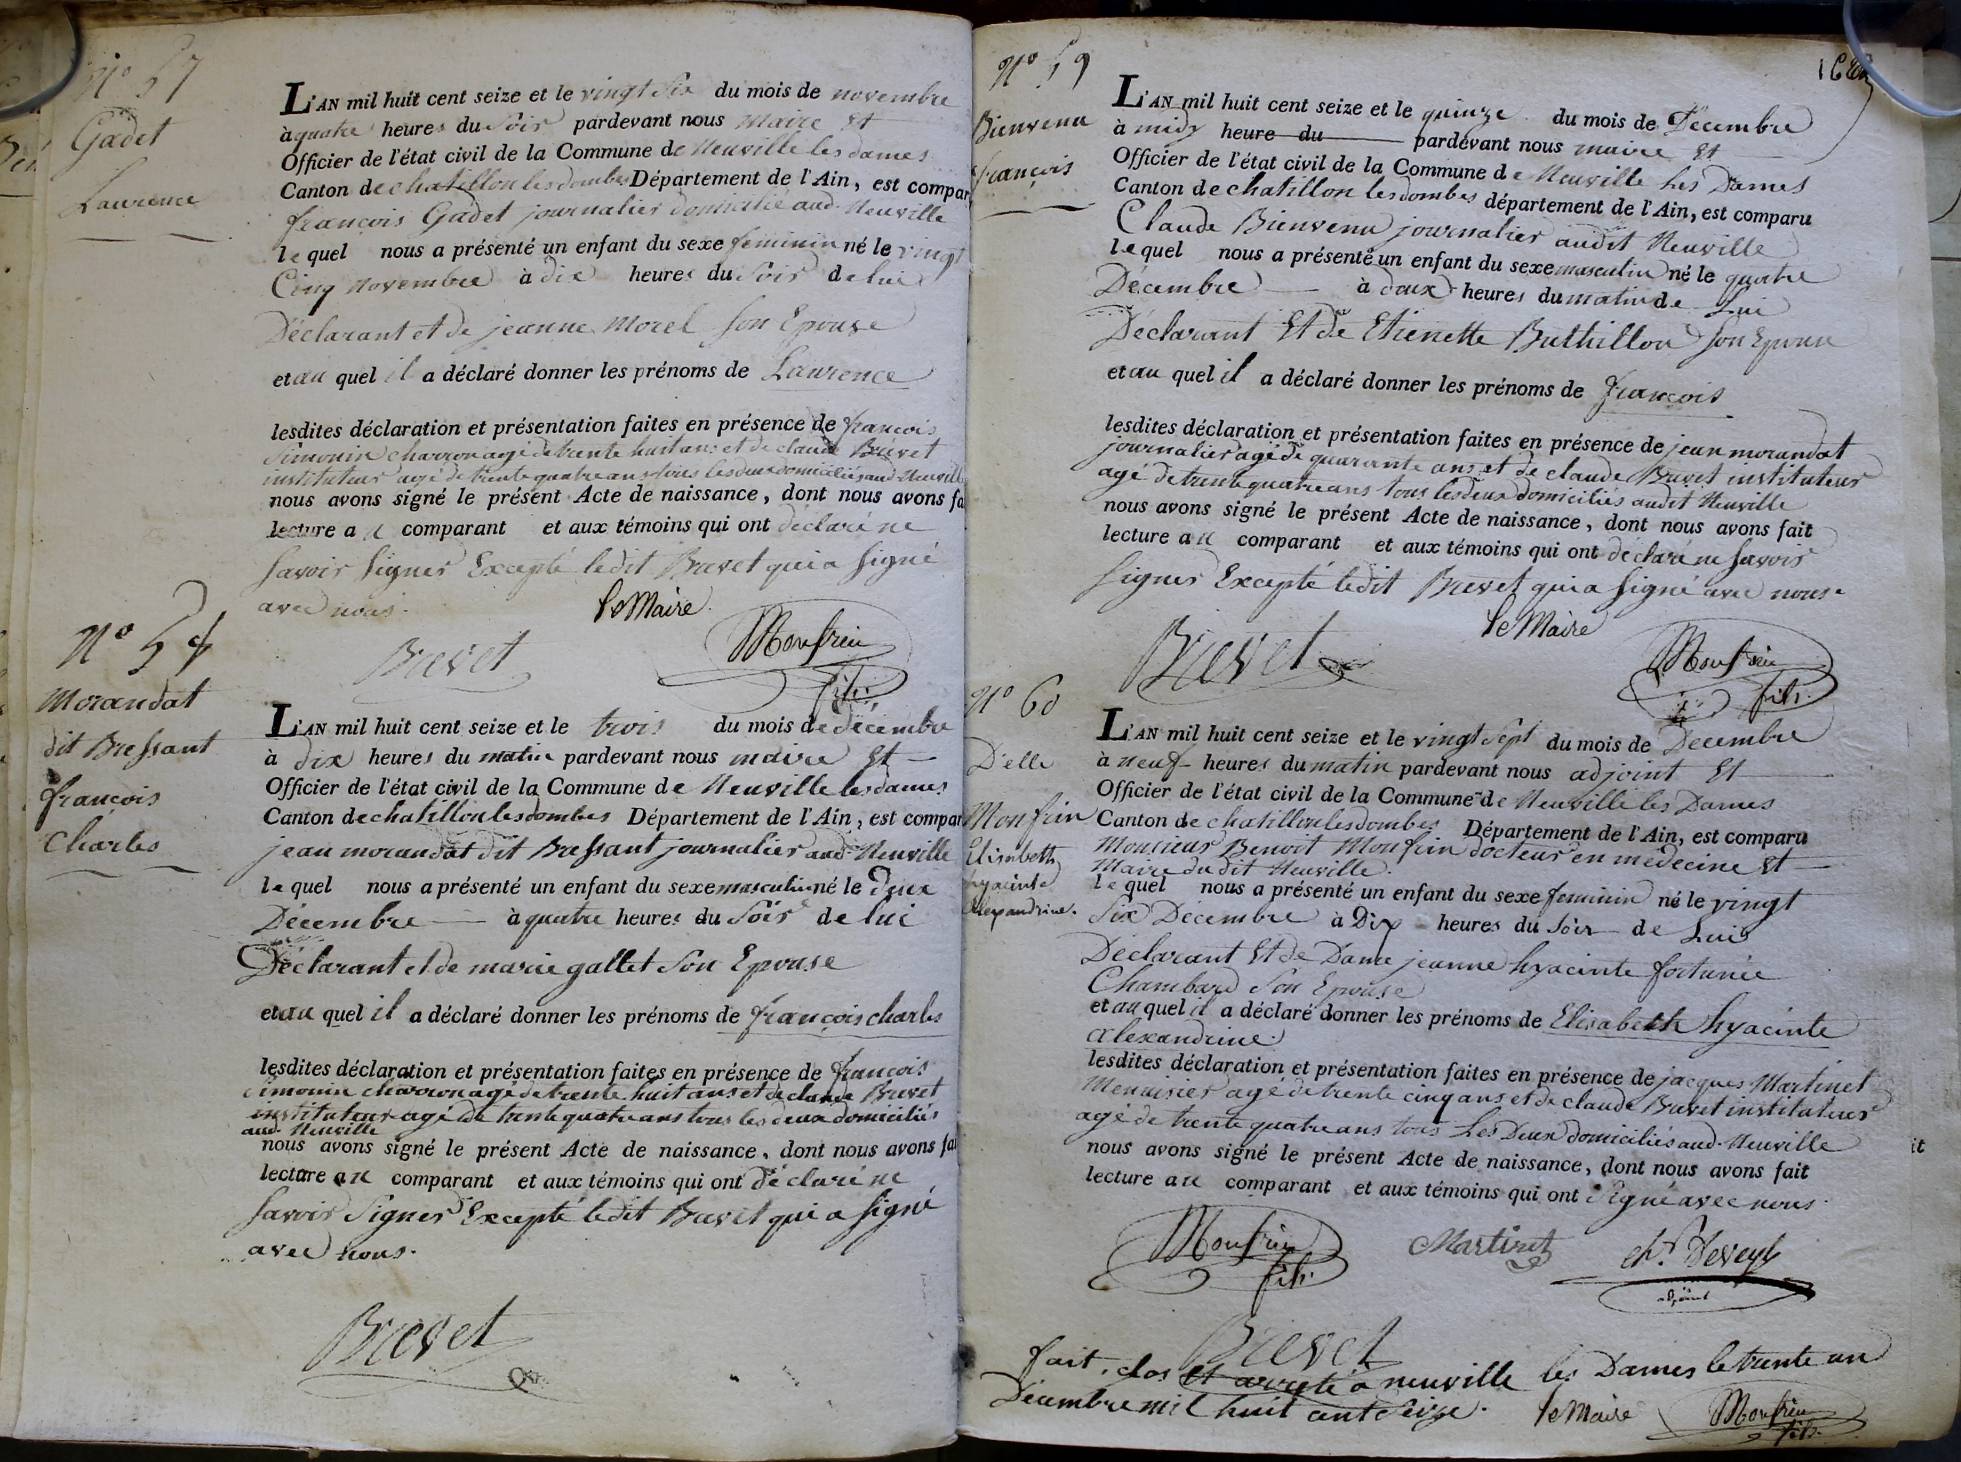 N° 57
Gadet
Laurence
L'AN mil huit cent seize et le vingt Six du mois de novembre
à quatre heures du Soir pardevant nous Maire Et
Officier de l'état civil de la Commune de Neuville les dames
Canton de chatillon les dombes Département de l'Ain, est compar
françois Gadet journalier domicilié aud. Neuville
le quel nous a présenté un enfant du sexe feminin né le vingt
Cinq Novembre à dix heures du Soir de lui
Déclarant et de jeanne Morel Son Epouse
et au quel il a déclaré donner les prénoms de Laurence
lesdites déclaration et présentation faites en présence de françois
Simonin charron agé de trente huit ans et de claude Brevet
instituteur agé de trente quatre ans tous les deux domiciliés aud. Neuville
nous avons signé le présent Acte de naissance, dont nous avons fa
lecture a u comparant et aux témoins qui ont déclaré ne
Savoir Signer Excepté ledit Brevet qui a Signé
avec nous.
le Maire
Brevet Monfrin
fils
N° 58
Morandat
dit Bressant
françois
Charles
L'AN mil huit cent seize et le trois du mois de décembre
à dix heures du matin pardevant nous maire Et
Officier de l'état civil de la Commune de Neuville les dames
Canton de chatillon les dombes Département de l'Ain, est compar
jean morandat dit Bressant journalier aud. Neuville
le quel nous a présenté un enfant du sexe masculin né le deux
Décembre à quatre heures du Soir de lui
Déclarant et de marie gallet Son Epouse
et au quel il a déclaré donner les prénoms de françois charles
lesdites déclaration et présentation faites en présence de françois
Simonin charron agé de trente huit ans et de claude Brevet
instituteur agé de trente quatre ans tous les deux domiciliés
aud. Neuville
nous avons signé le présent Acte de naissance, dont nous avons fai
lecture au comparant et aux témoins qui ont déclaré ne
Savoir Signer Excepté ledit Brevet qui a Signé
avec nous.
Brevet
N° 59
Bienvenu
françois
L'AN mil huit cent seize et le quinze du mois de Décembre
à midy heure du pardevant nous maire Et
Officier de l'état civil de la Commune de Neuville Les Dames
Canton de chatillon les dombes département de l'Ain, est comparu
Claude Bienvenu journalier audit Neuville
le quel nous a présenté un enfant du sexe masculin né le quatre
Décembre à deux heures du matin de Lui
Déclarant Et de Etienette Buthillon Son Epouse
et au quel il a déclaré donner les prénoms de françois
lesdites déclaration et présentation faites en présence de jean morandat
journalier agé de quarante ans et de claude Brevet instituteur
agé de trente quatre ans tous les deux domiciliés audit Neuville
nous avons signé le présent Acte de naissance, dont nous avons fait
lecture a u comparant et aux témoins qui ont déclaré ne Savoir
Signer Excepté ledit Brevet qui a Signé avec nous.
le Maire
Brevet Monfrin
fils
N° 60
D'elle
Monfrin
Elisabeth
hyacinte
Alexandrine.
L'AN mil huit cent seize et le vingt Sept du mois de Décembre
à neuf heures du matin pardevant nous adjoint Et
Officier de l'état civil de la Commune de Neuville les Dames
Canton de chatillon les dombes Département de l'Ain, est comparu
Monsieur Benoit Monfrin docteur en médecine Et
Maire du dit Neuville.
le quel nous a présenté un enfant du sexe feminin né le vingt
Six Décembre à Dix heures du Soir de Lui
Déclarant Et de Dame jeanne hyacinte fortunée
Chambard Son Epouse
et au quel il a déclaré donner les prénoms de Elisabeth hyacinte
alexandrine.
lesdites déclaration et présentation faites en présence de jacques Martinet
Menuisier agé de trente cinq ans et de claude Brevet instituteur
agé de trente quatre ans tous Les Deux domiciliés aud. Neuville
nous avons signé le présent Acte de naissance, dont nous avons fait
lecture au comparant et aux témoins qui ont Signé avec nous.
Monfrin Martinet
fils
adjoint
Brevet
fait, clos et arrêté à neuville les Dames le trente un
Décembre mil huit cent Seize. le Maire Monfrin
fils